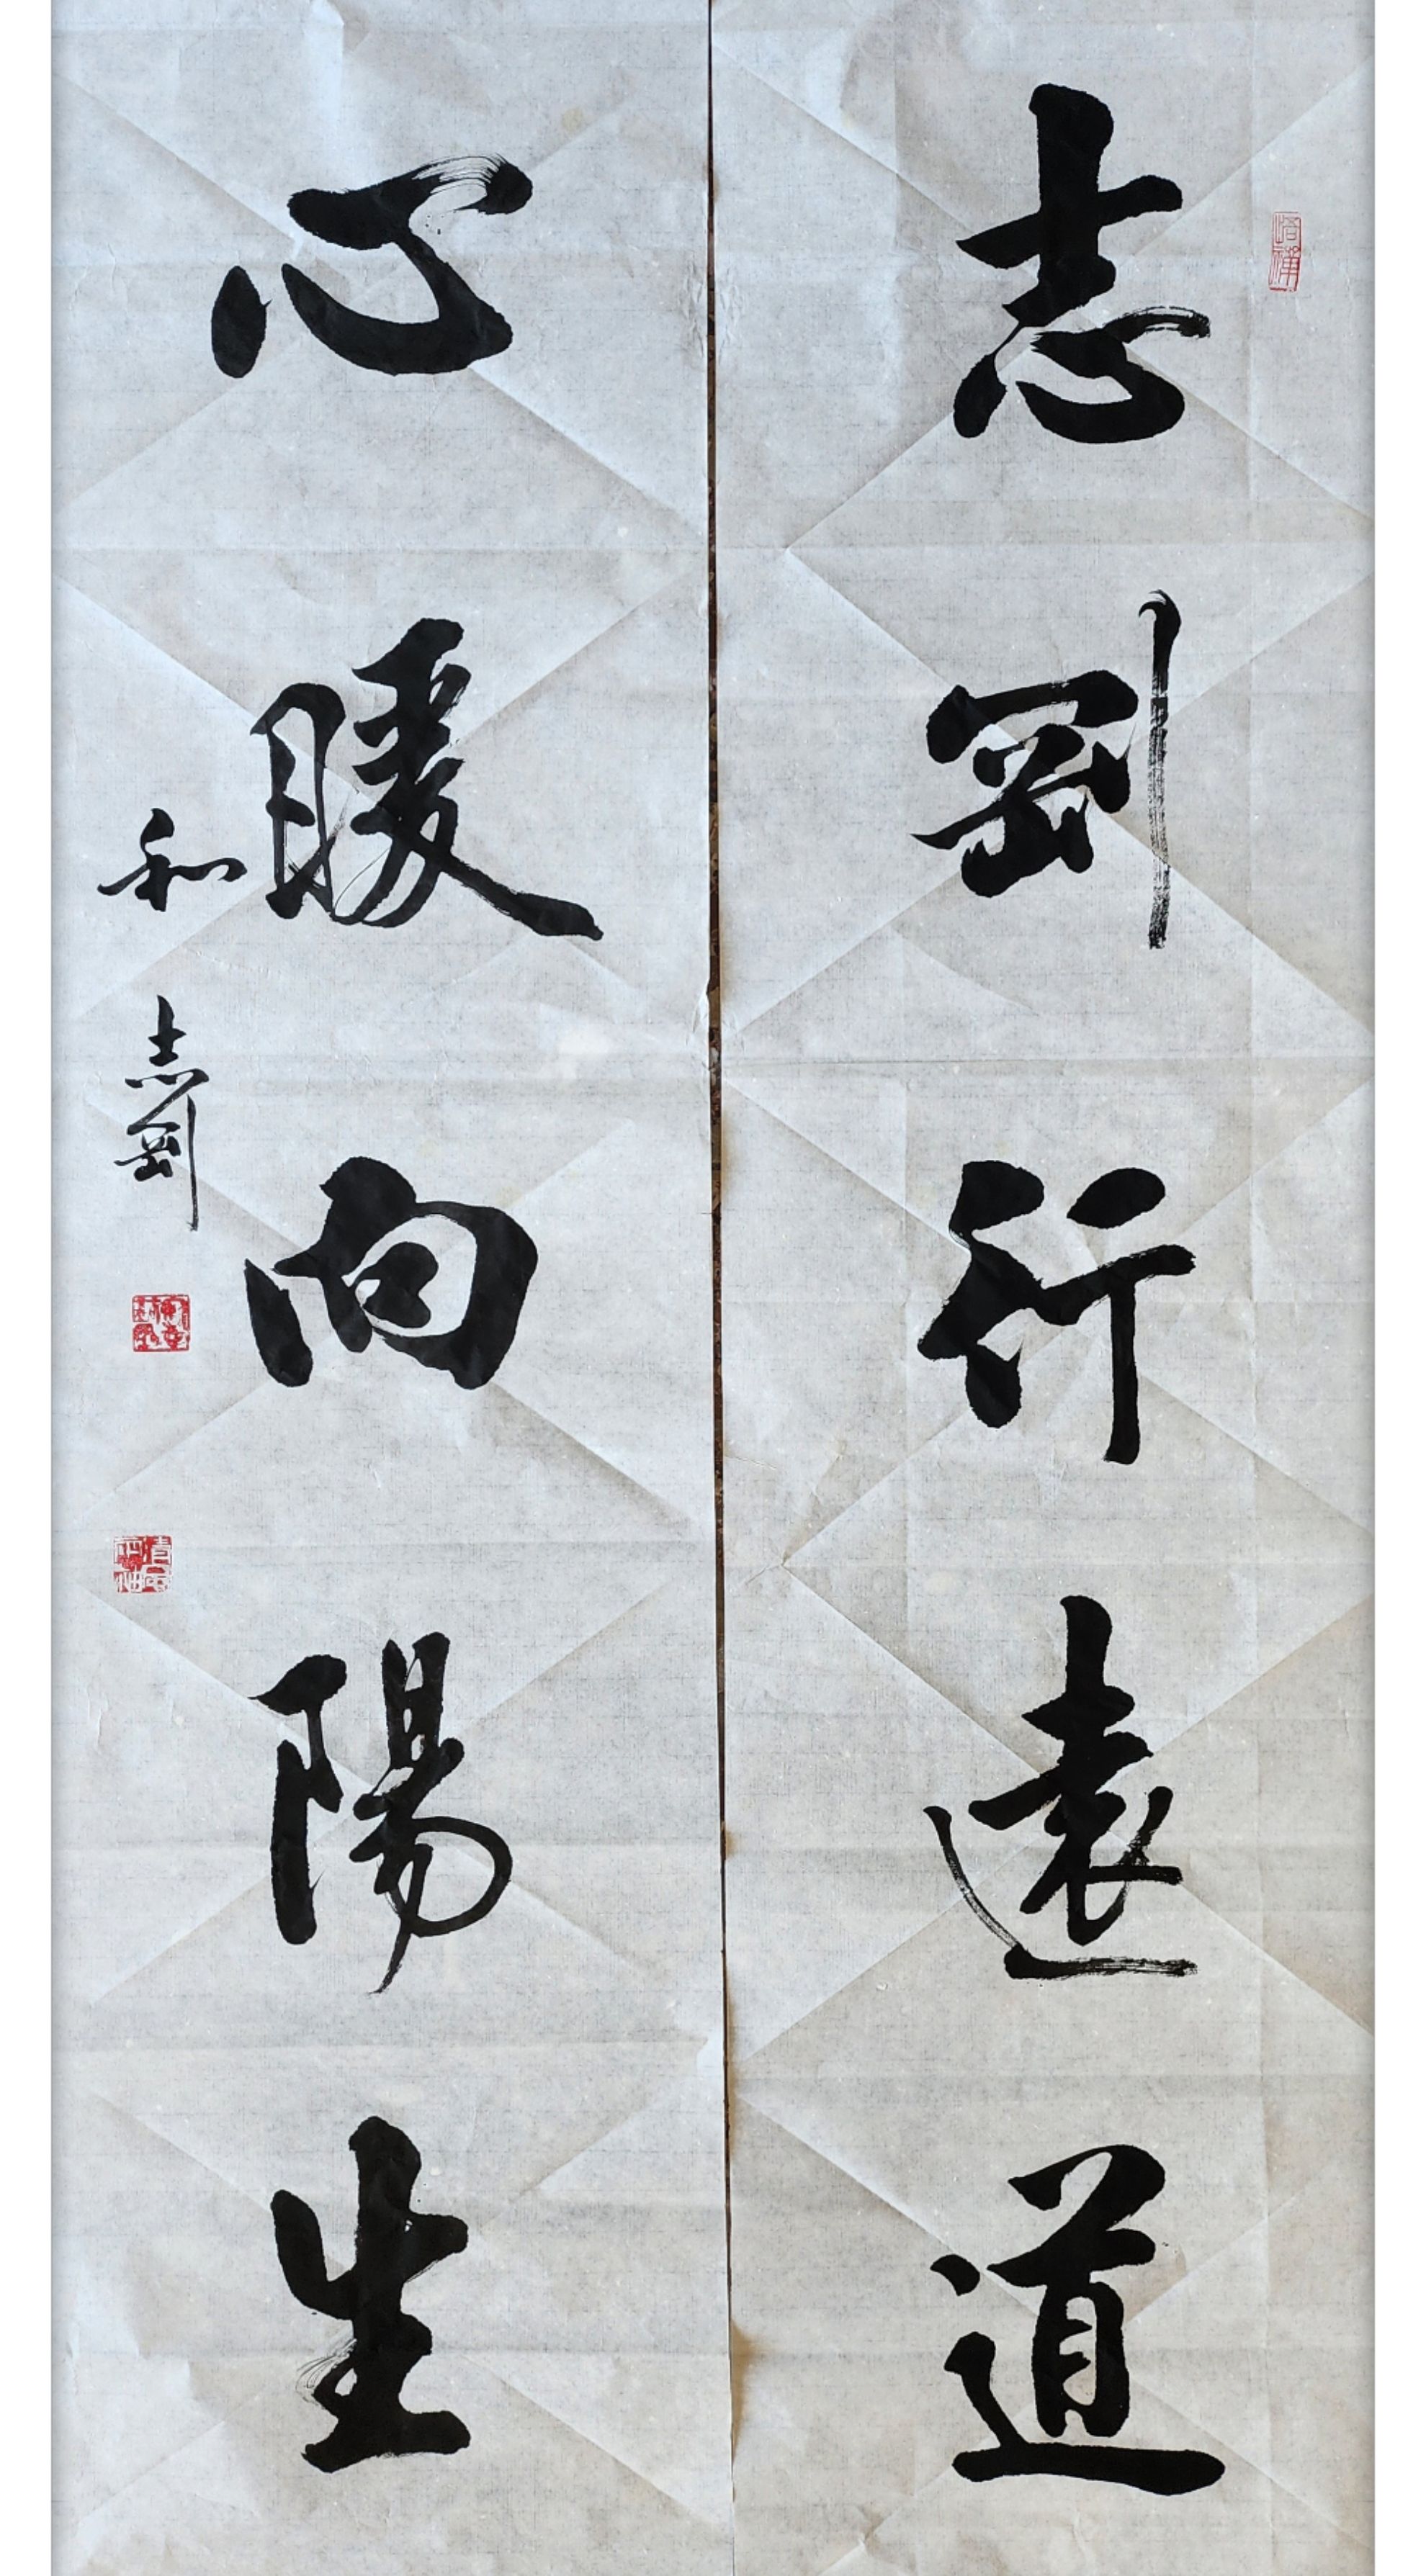 志剛行遠道
心暖向陽生
和志剛